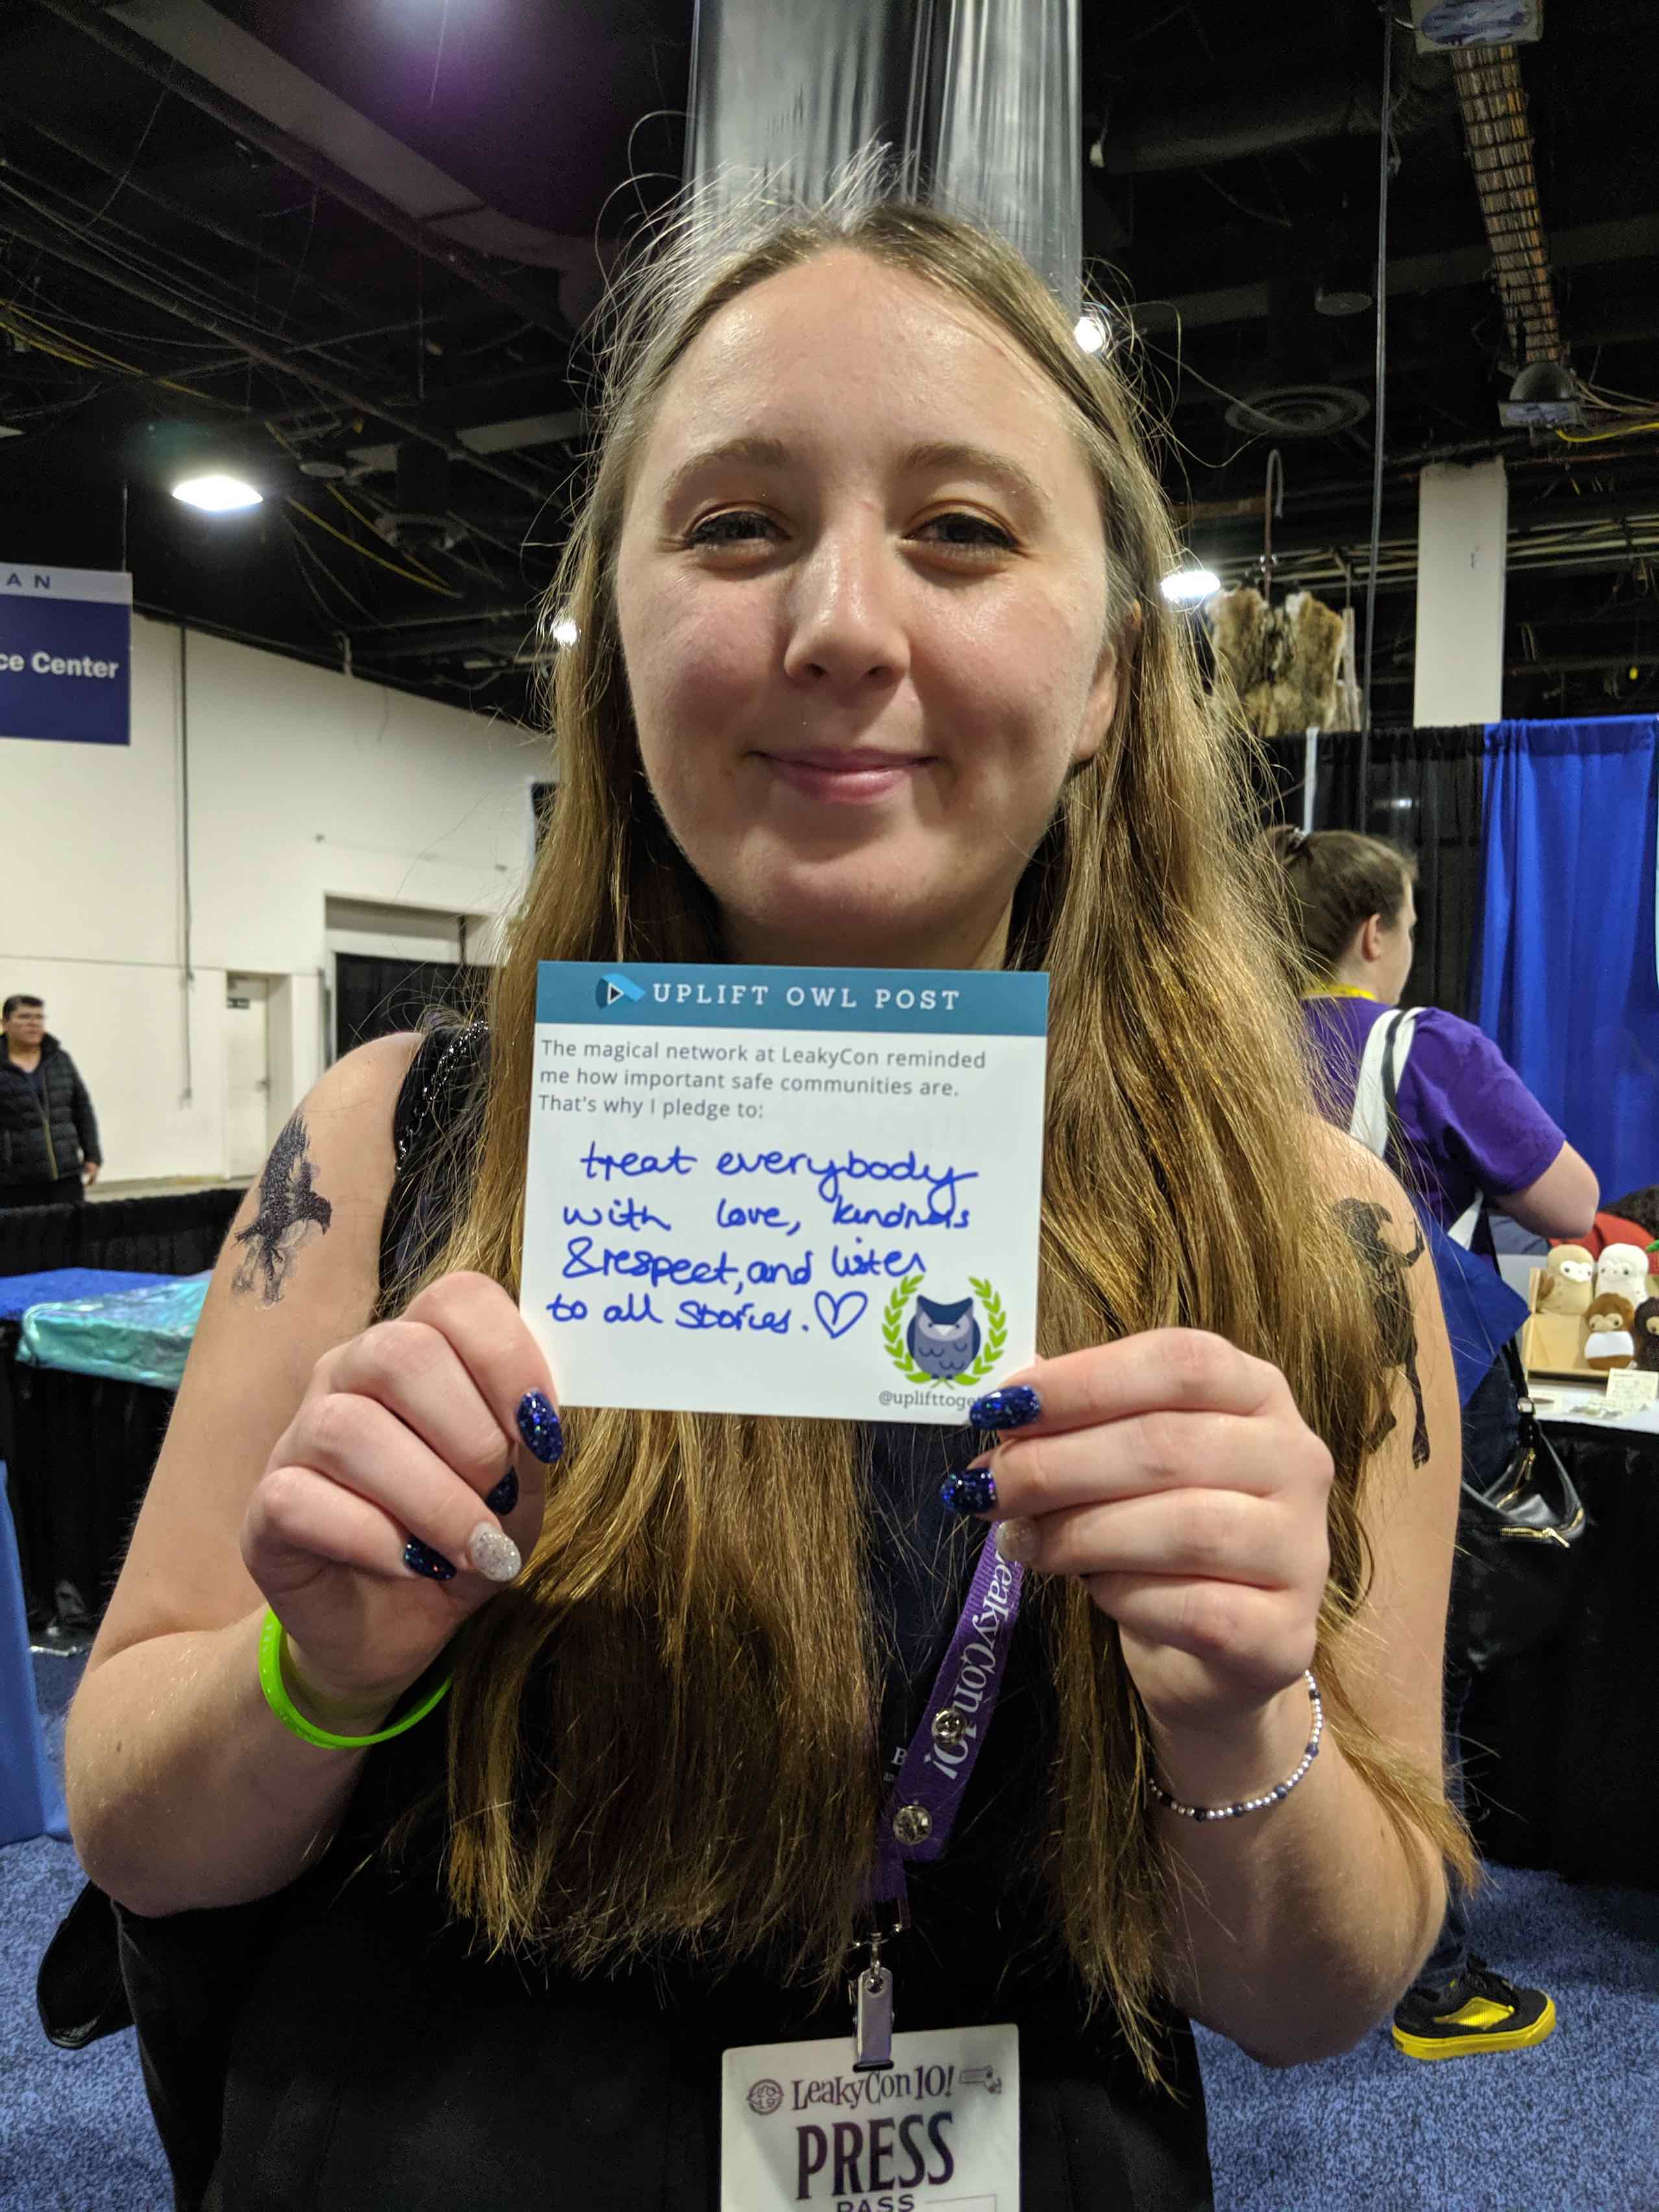 AN
ce Center
UPLIFT OWL POST
The magical network at LeakyCon reminded
me how important safe communities are.
That's why I pledge to:
treat everybody
with love, kindness
& respect, and listen
to all stories.
@uplifttoge
LeakyCon10!
LeakyCon10!
PRESS
PASS